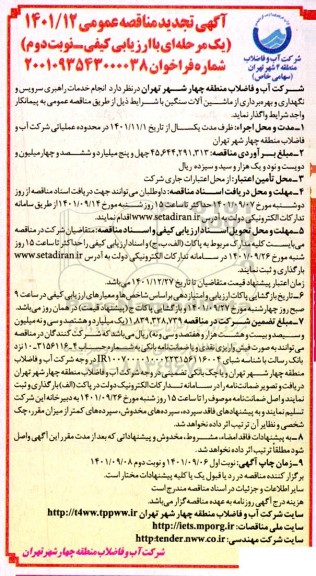 آگهی تجدید مناقصه عمومی ۱۴۰۱/۱۲
(یک مرحله‌ای با ارزیابی کیفی-نوبت دوم)
شماره فراخوان ۲۰۰۱۰۹۳۵۴۳۰۰۰۰۳۸
شرکت آب و فاضلاب
منطقه ۴ شهر تهران
(سهامی خاص)
شرکت آب و فاضلاب منطقه چهار شهر تهران در نظر دارد انجام خدمات راهبری سرویس و
نگهداری و بهره‌برداری از ماشین آلات سنگین با شرایط ذیل از طریق مناقصه عمومی به پیمانکار
واجد شرایط واگذار نماید.
۱-مدت و محل اجرا: ظرف مدت یکسال از تاریخ ۱۴۰۱/۱۱/۱ در محدوده عملیاتی شرکت آب و
فاضلاب منطقه چهار شهر تهران
۲-مبلغ برآوردی مناقصه: ۴۵,۶۴۴,۲۹۱,۳۱۳ چهل و پنج میلیارد و ششصد و چهل و چهار میلیون و
دویست و نود و یک هزار و سیصد و سیزده ریال
۳-محل تأمین اعتبار: از محل اعتبارات جاری شرکت
۴-مهلت و محل دریافت اسناد مناقصه: داوطلبان می‌توانند جهت دریافت اسناد مناقصه از روز
دوشنبه مورخ ۱۴۰۱/۰۹/۰۷ حداکثر تا ساعت ۱۵ روز شنبه مورخ ۱۴۰۱/۰۹/۱۲ از طریق سامانه
تدارکات الکترونیکی دولت به آدرس www.setadiran.ir اقدام نمایند.
۵-مهلت و محل تحویل اسناد ارزیابی کیفی و اسناد مناقصه: متقاضیان شرکت در مناقصه
می‌بایست کلیه مدارک مربوط به پاکات (الف، ب، ج) و اسناد ارزیابی کیفی را حداکثر تا ساعت ۱۵ روز
شنبه مورخ ۱۴۰۱/۰۹/۲۶ در سامانه تدارکات الکترونیکی دولت به آدرس www.setadiran.ir
بارگذاری و ثبت نمایند.
زمان اعتبار پیشنهاد قیمت متقاضیان تا تاریخ ۱۴۰۱/۱۲/۲۷ می‌باشد.
۶-تاریخ بازگشایی پاکات: ارزیابی و امتیازدهی براساس شاخص‌ها و معیارهای ارزیابی کیفی در ساعت ۹
صبح روز چهارشنبه مورخ ۱۴۰۱/۰۹/۲۷ و بازگشایی پاکات ج (پیشنهاد قیمت) در همان روز می‌باشد.
۷-مبلغ تضمین شرکت در مناقصه ۱,۸۳۹,۳۲۸,۷۳۹ (یک میلیارد و هشتصد و سی و نه میلیون
و سیصد و بیست و هشت هزار و هفتصد و سی و نه) ریال می‌باشد که شرکت کنندگان در مناقصه
می‌توانند به صورت فیش واریزی نقدی و یا ضمانت‌نامه بانکی به شماره حساب
بانک رسالت با شناسه شبای در وجه شرکت آب و فاضلاب
منطقه چهار شهر تهران و یا چک بانکی تضمینی در وجه شرکت آب و فاضلاب منطقه چهار شهر تهران
دریافت و تصویر ضمانت‌نامه را در سامانه تدارکات الکترونیک دولت در پاکت (الف) بارگذاری و ثبت
نمایند و اصل ضمانت‌نامه موصوف را تا ساعت ۱۵ روز شنبه مورخ ۱۴۰۱/۰۹/۲۶ به دبیرخانه این شرکت
تسلیم نمایند و به پیشنهادهای فاقد سپرده، سپرده‌های مخدوش، سپرده‌های کمتر از میزان مقرر، چک
شخصی و نظایر آن ترتیب اثر داده نخواهد شد.
۸-به پیشنهادات فاقد امضاء، مشروط، مخدوش و پیشنهاداتی که بعد از مدت مقرر این آگهی واصل
شود مطلقاً ترتیب اثر داده نخواهد شد.
۹-زمان چاپ آگهی: نوبت اول ۱۴۰۱/۰۹/۰۶ و نوبت دوم ۱۴۰۱/۰۹/۰۸
برگزار کننده مناقصه در رد یا قبول یک یا کلیه پیشنهادات مختار است.
سایر اطلاعات و جزئیات در اسناد مناقصه مندرج است
هزینه درج آگهی روزنامه به عهده مناقصه گر می‌باشد.
سایت شرکت آب و فاضلاب منطقه چهار شهر تهران http://t4ww.tppww.ir
سایت ملی مناقصات: http://iets.mporg.ir
سایت شرکت مهندسی: http:tender.nww.co.ir
شرکت آب و فاضلاب منطقه چهار شهر تهران